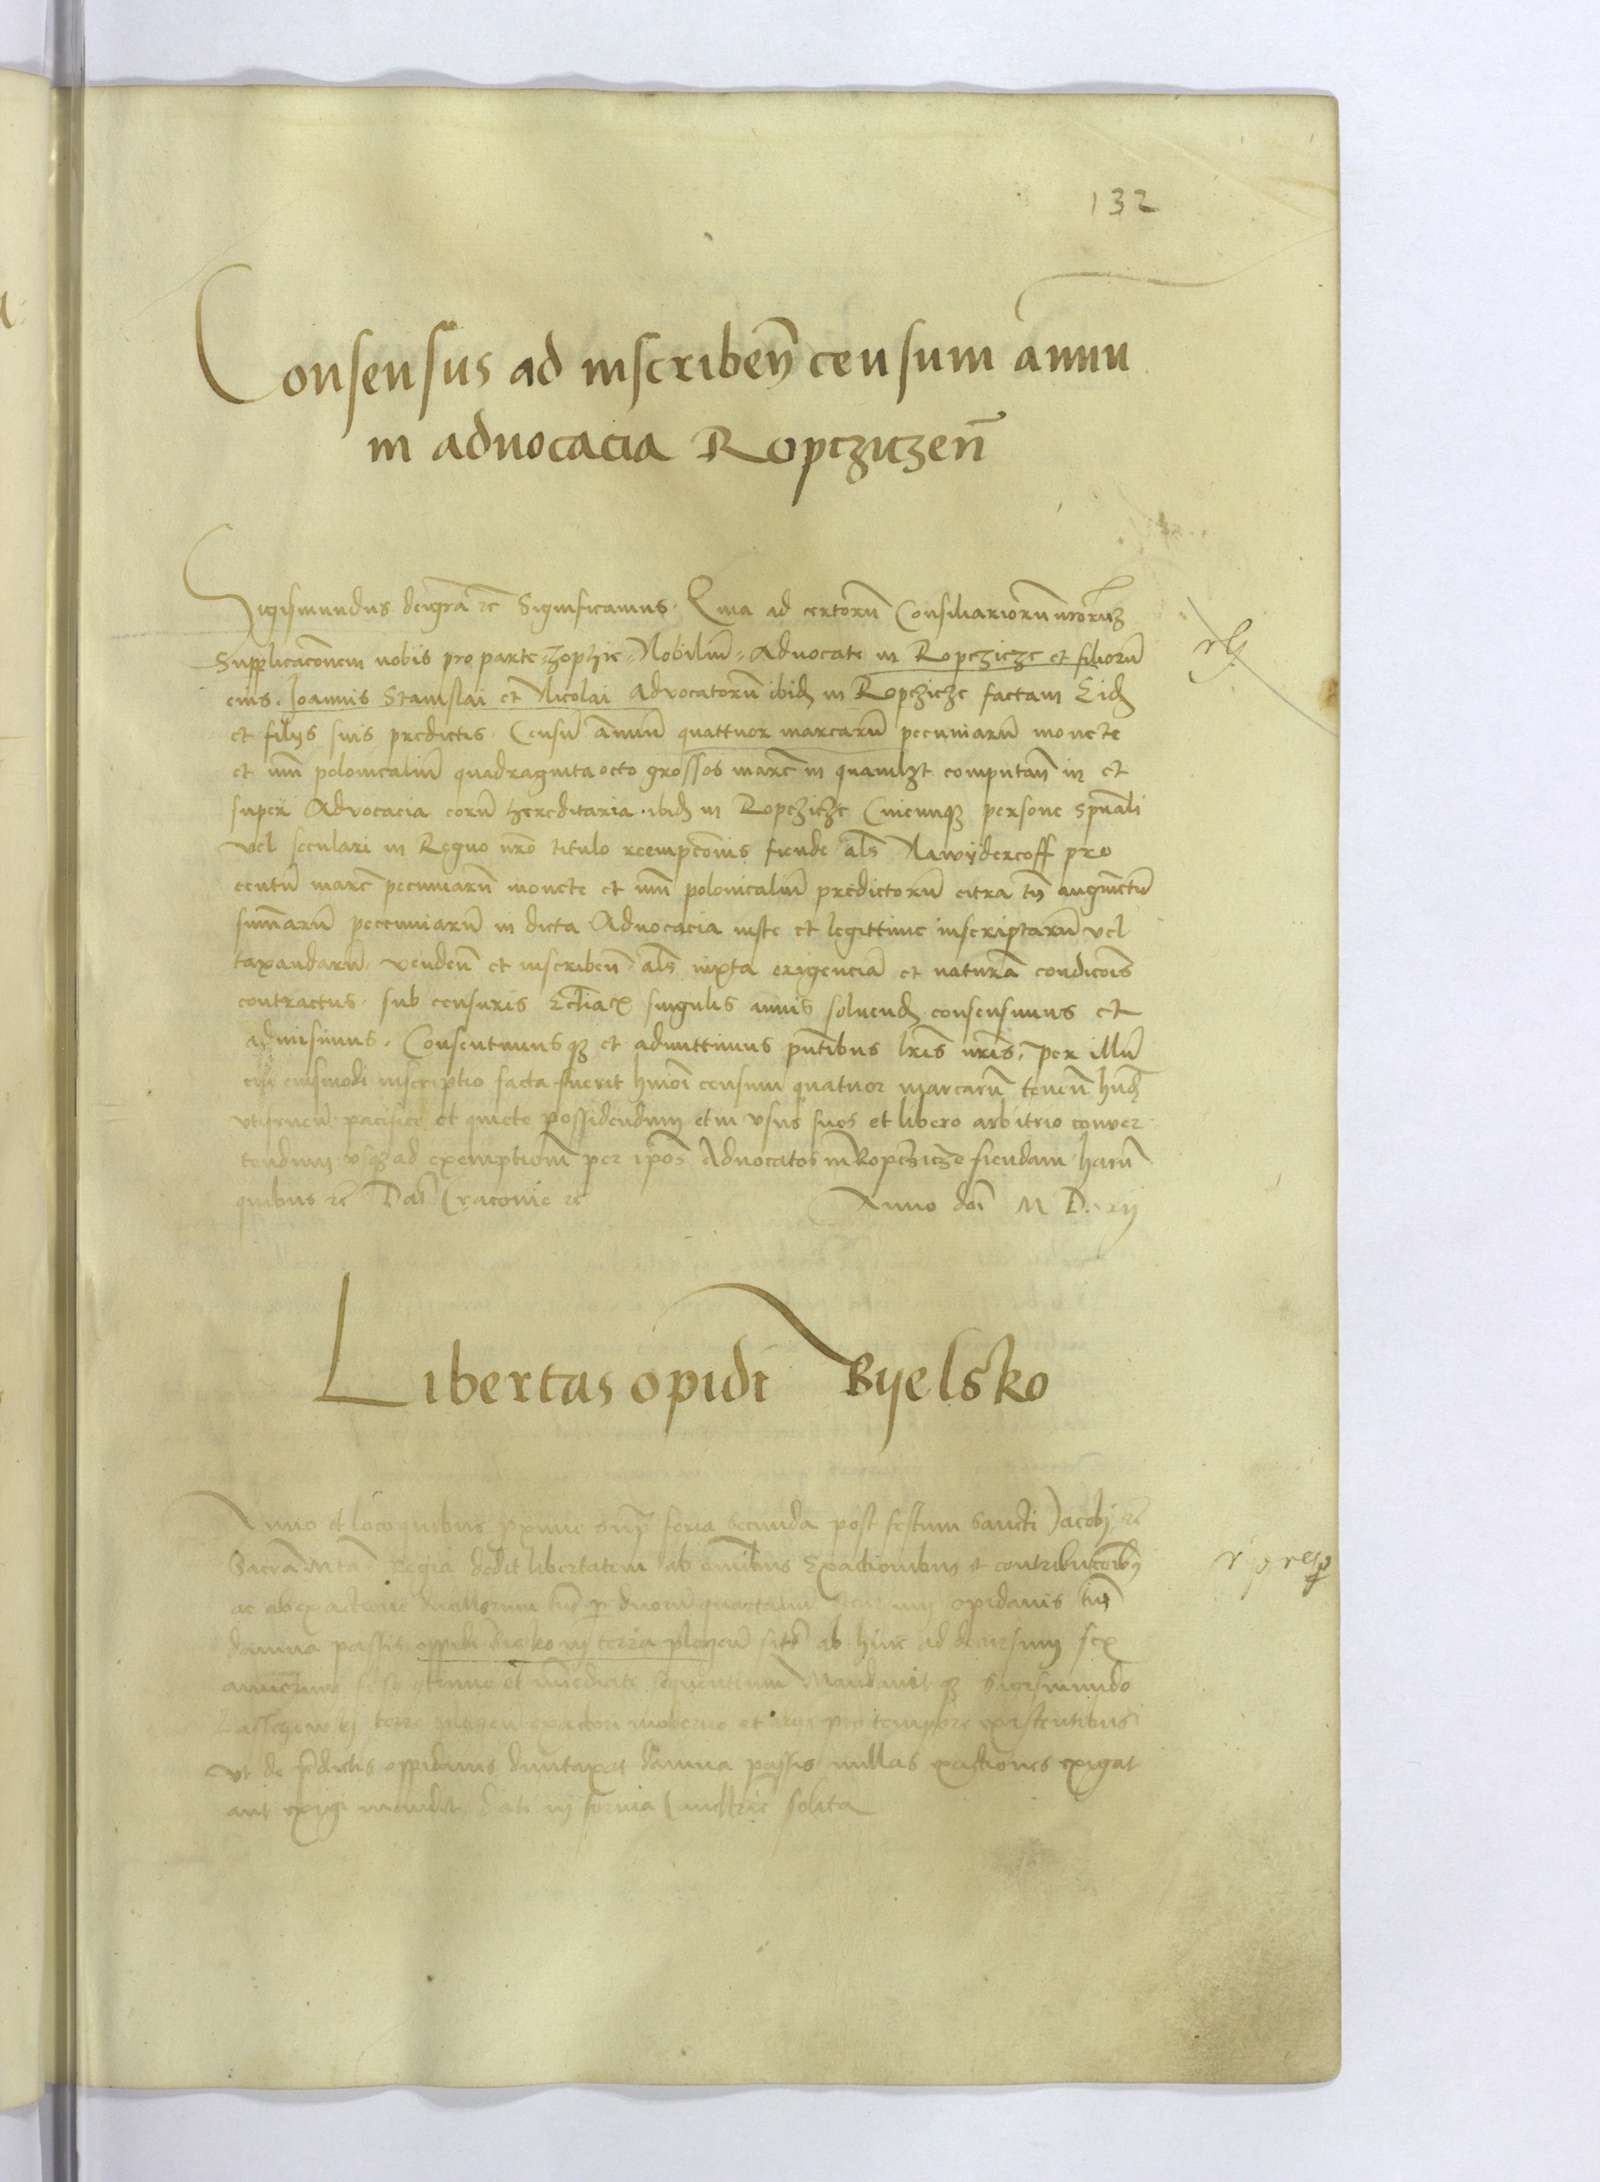 132
Consensus ad inscribeñ censum annuu
in advocacia Ropcziczeñ
Sigismundus deigra rc Significamus. Quia ad certorum Consiliariorum nrorum
Supplicacionem nobis pro parte Zophie Nobilium Advocate in Ropczicze et filiorum
eius Joannis Stanislai et Nicolai Advocatorum ibid in Ropczicze factam Eid
et filijs suis predictis Censum annuum quattuor marcarum pecuniarum monete
et num polonicalium quadraginta octo grossos marc in quamlzt computan in et
super Advocacia eorum hereditaria ibid in Ropczicze Cuicumqz persone spuali
vel seculari in Regno nro titulo reempcionis fiende als Nawyderkoff pro
centum marc pecuniarum monete et num polonicalium predictorum citra tn augmentum
summarum peccuniarum in dicta Advocacia iuste et legittime inscriptarum vel
taxandarum venden et inscriben als iuxta exigenciam et naturam condicois
contractus sub censuris Ecclias singulis annis soluend consensimus et
admisimus. Consentimusqz et admittimus pntibus lris nris, per illum
cui eiusmodi inscriptio facta fuerit hmoi censum quatuor marcarum tenen hnd
utifruen pacifice et quiete possidendum et in usus suos et libero arbitrio conver
tendum usqz ad exemptionem per ipos Advocatos in Ropczicze fiendam harum
quibus rc Dat Cracovie rc Anno doi M D xij
Libertas opidi Byelsko
Anno et loco quibus proxime supra feria secunda post festum Sancti Jacobi rc
Sacra Mtas Regia dedit libertatem ab omnibus Exactionibus et contributionibus
ac ab exactione opidanis
damna passis oppidi in terra plocen ab hinc ad decursum sex
annorum et immediate sequentium Mandavitqz Sigismundo
terre plocen exactori moderno et alijs pro tempore existentibus
ut de predictis oppidanis duntaxat damna passis nullas exactiones exigat
aut exigi mandet in forma Cancellarie solita